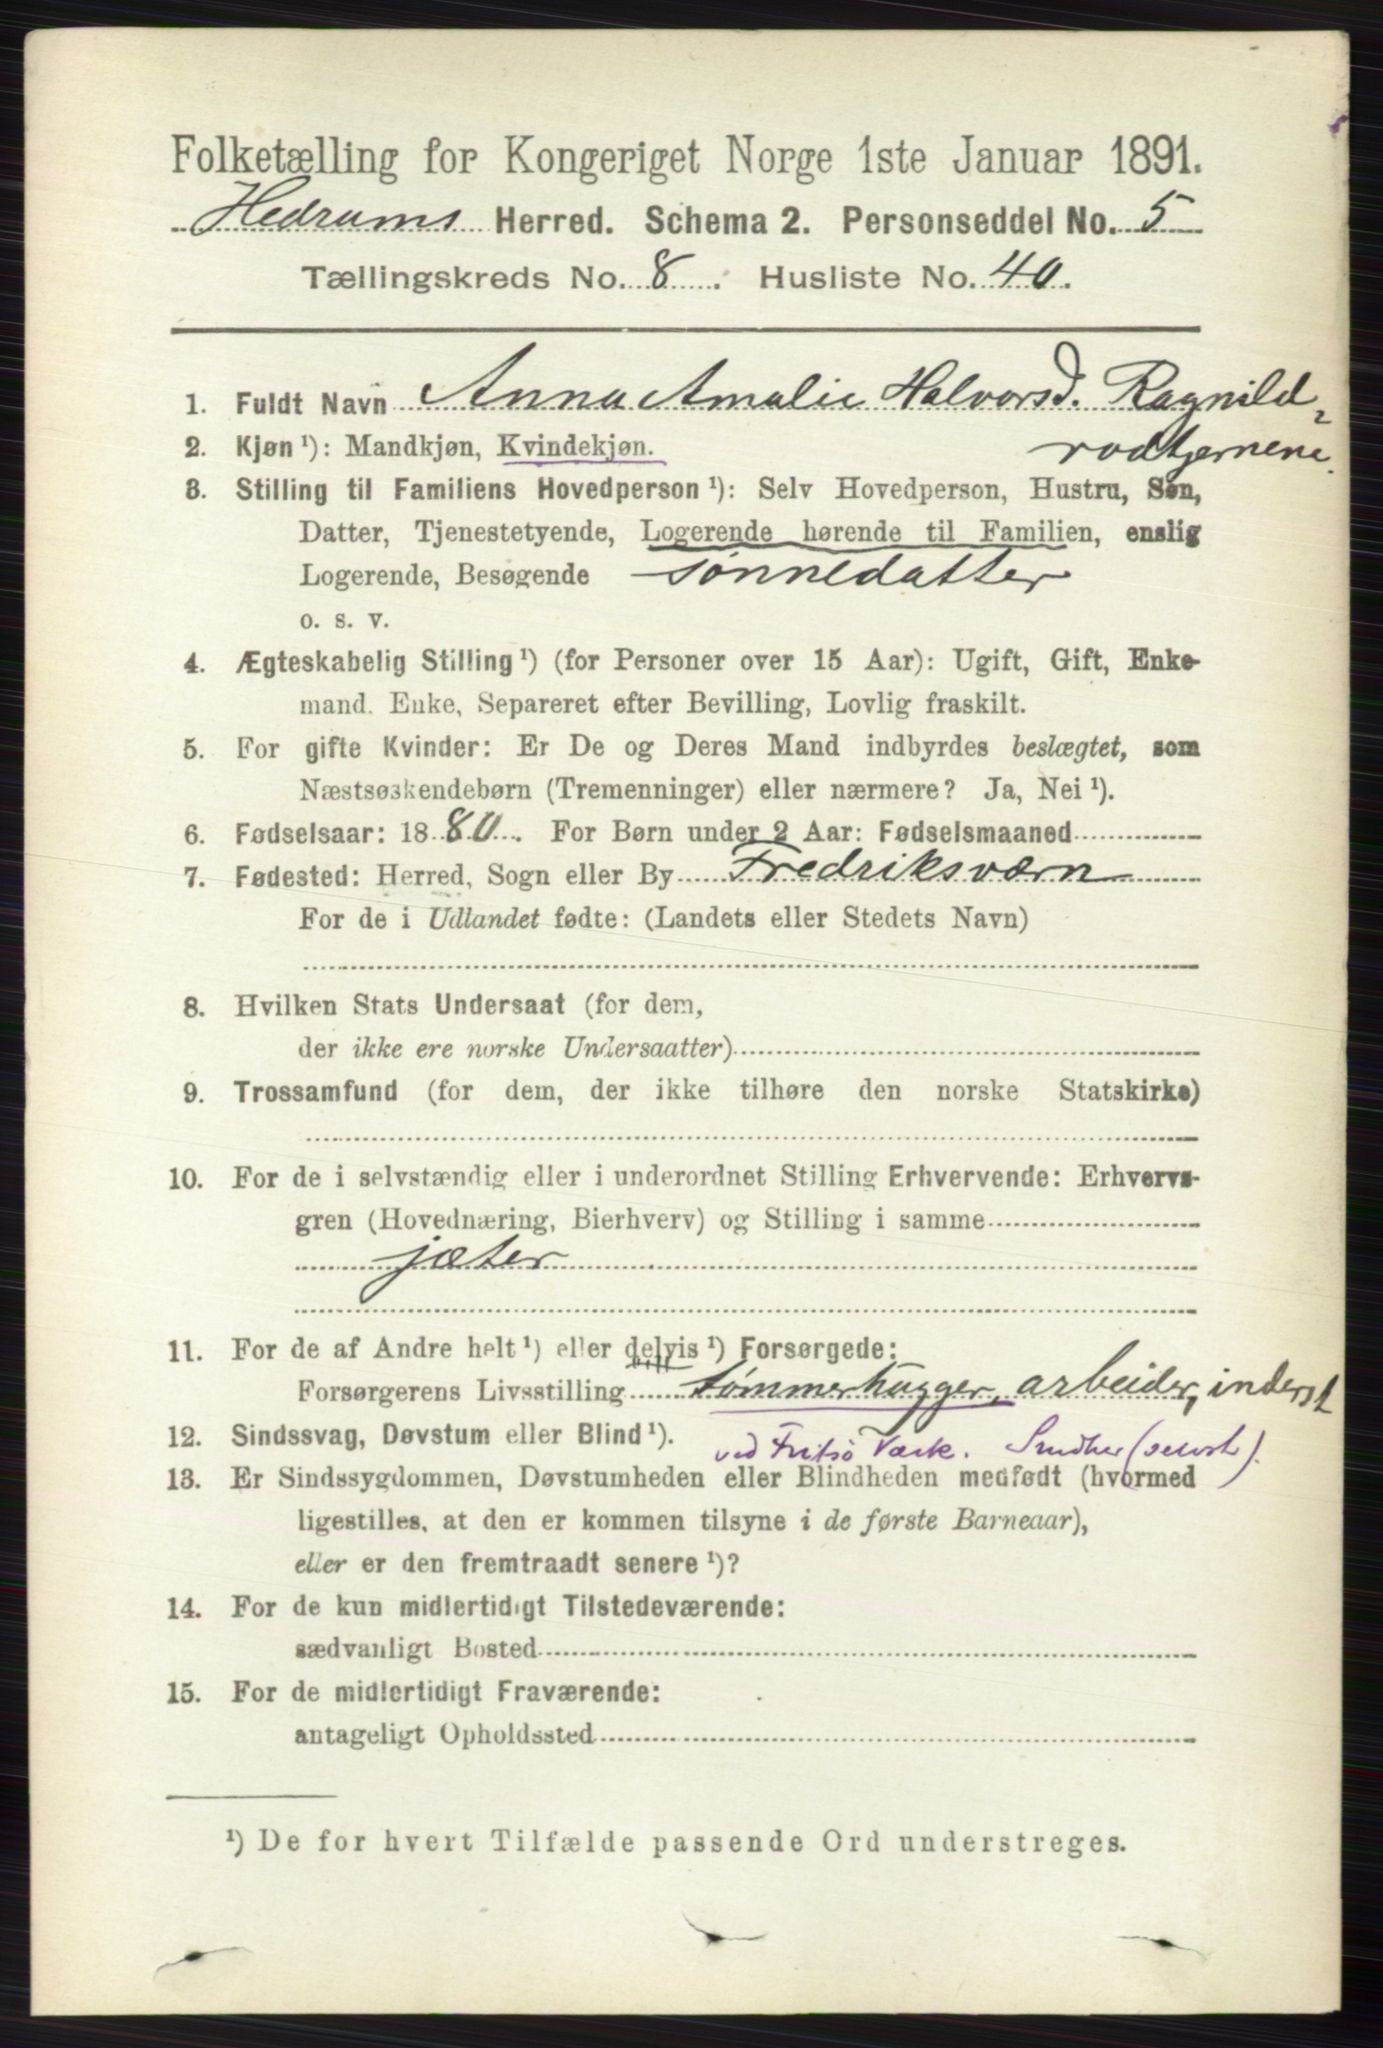 Folketælling for Kongeriget Norge 1ste Januar 1891.
Hedrums Herred. Schema 2. Personseddel No. 5
Tællingskreds No. 8. Husliste No. 40.
1. Fuldt Navn Anna Amalie Halvorsd. Ragnild-
rodtjernene.
2. Kjøn ¹): Mandkjøn, Kvindekjøn.
3. Stilling til Familiens Hovedperson ¹): Selv Hovedperson, Hustru, Søn,
Datter, Tjenestetyende, Logerende hørende til Familien, enslig
Logerende, Besøgende sønnedatter
o. s. v.
4. Ægteskabelig Stilling ¹) (for Personer over 15 Aar): Ugift, Gift, Enke-
mand. Enke, Separeret efter Bevilling, Lovlig fraskilt.
5. For gifte Kvinder: Er De og Deres Mand indbyrdes beslægtet, som
Næstsøskendebørn (Tremenninger) eller nærmere? Ja, Nei ¹).
6. Fødselsaar: 1880. For Børn under 2 Aar: Fødselsmaaned
7. Fødested: Herred, Sogn eller By Fredriksværn
For de i Udlandet fødte: (Landets eller Stedets Navn)
8. Hvilken Stats Undersaat (for dem,
der ikke ere norske Undersaatter)
9. Trossamfund (for dem, der ikke tilhøre den norske Statskirke)
10. For de i selvstændig eller i underordnet Stilling Erhvervende: Erhvervs-
gren (Hovednæring, Bierhverv) og Stilling i samme
jæter
11. For de af Andre helt ¹) eller delvis ¹) Forsørgede:
Forsørgerens Livsstilling tømmerhugger, arbeider, inderst
ved Fritsø Værk.
12. Sindssvag, Døvstum eller Blind ¹).
13. Er Sindssygdommen, Døvstumheden eller Blindheden medfødt (hvormed
ligestilles, at den er kommen tilsyne i de første Barneaar),
eller er den fremtraadt senere ¹)?
14. For de kun midlertidigt Tilstedeværende:
sædvanligt Bosted
15. For de midlertidigt Fraværende:
antageligt Opholdssted
¹) De for hvert Tilfælde passende Ord understreges.